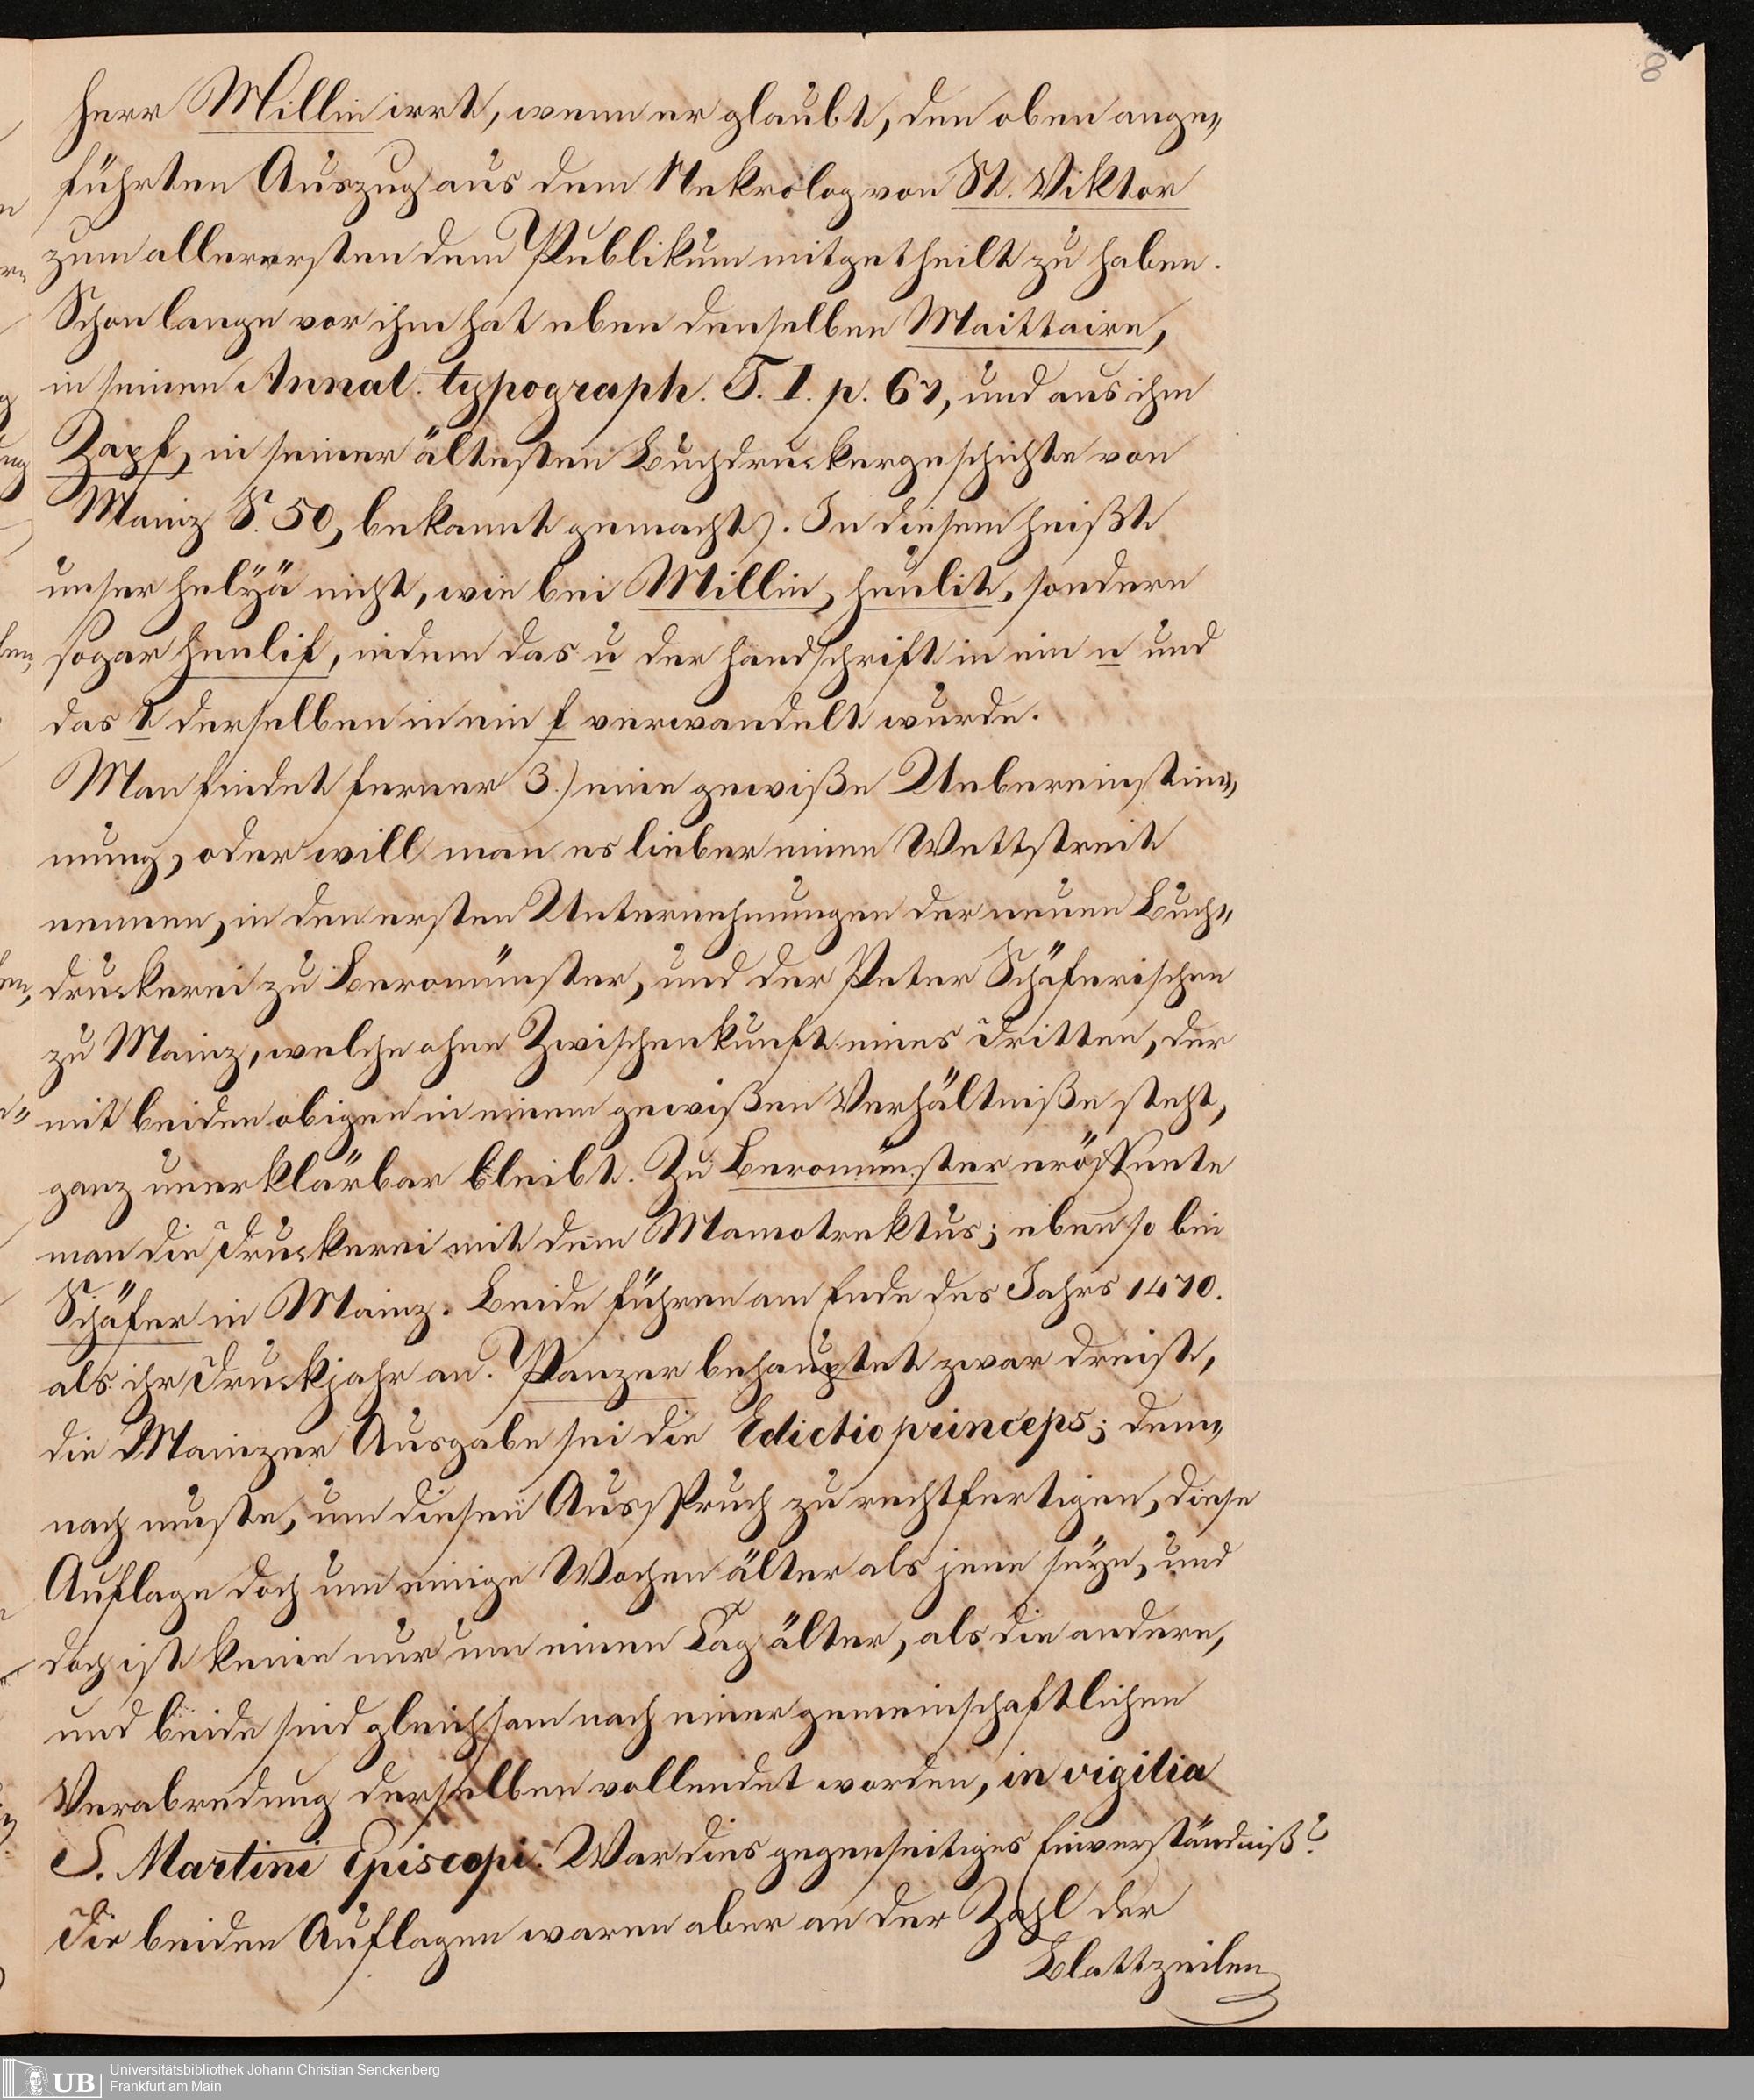 8
Herr Millin irrt, wenn er glaubt, den oben ange„
führten Auszug aus dem Nekrolog von St. Viktor
zum allerersten dem Publikum mitgetheilt zu haben.
Schon lange vor ihm hat eben denselben Maittaire,
in seinen Annal. typograph. T. I. p. 67, und aus ihm
Zapf, in seiner ältesten Buchdruckergeschichte von
Mainz S. 50, bekannt gemacht. In diesem heißt
unser Helyä nicht, wie bei Millin, heulit, sondern
sogar henlif, indem das u der Handschrift in ein n und
das t derselben in ein f verwandelt wurde.
Man findet ferner 3.) eine gewiße Uebereinstim„
mung, oder will man es lieber einen Wettstreit
nennen, in den ersten Unternehmungen der neuen Buch„
druckerei zu Beromünster, und der Peter Schäferischen
zu Mainz, welche ohne Zwischenkunft eines Dritten, der
mit beiden obigen in einem gewißen Verhältniße steht,
ganz unerklärbar bleibt. Zu Beromünster eröffnete
man die Druckerei mit dem Mamotrektus; eben so bei
Schäfer in Mainz. Beide führen am Ende des Jahrs 1470.
als ihr Druckjahr an. Panzer behauptet zwar dreist,
die Mainzer Ausgabe sei die Edictio princeps; dem„
nach mußte, um diesen Ausspruch zu rechtfertigen, diese
Auflage doch um einige Wochen älter als jene seyn, und
doch ist keine nur um einen Tag älter, als die andere,
und beide sind gleichsam nach einer gemeinschaftlichen
Verabredung derselben vollendet worden, in vigilia
S. Martini Episcopi. War dies gegenseitiges Einverständniß?
Die beiden Auflagen waren aber an der Zahl der
Blattzeilen
UB Universitätsbibliothek Johann Christian Senckenberg
Frankfurt am Main